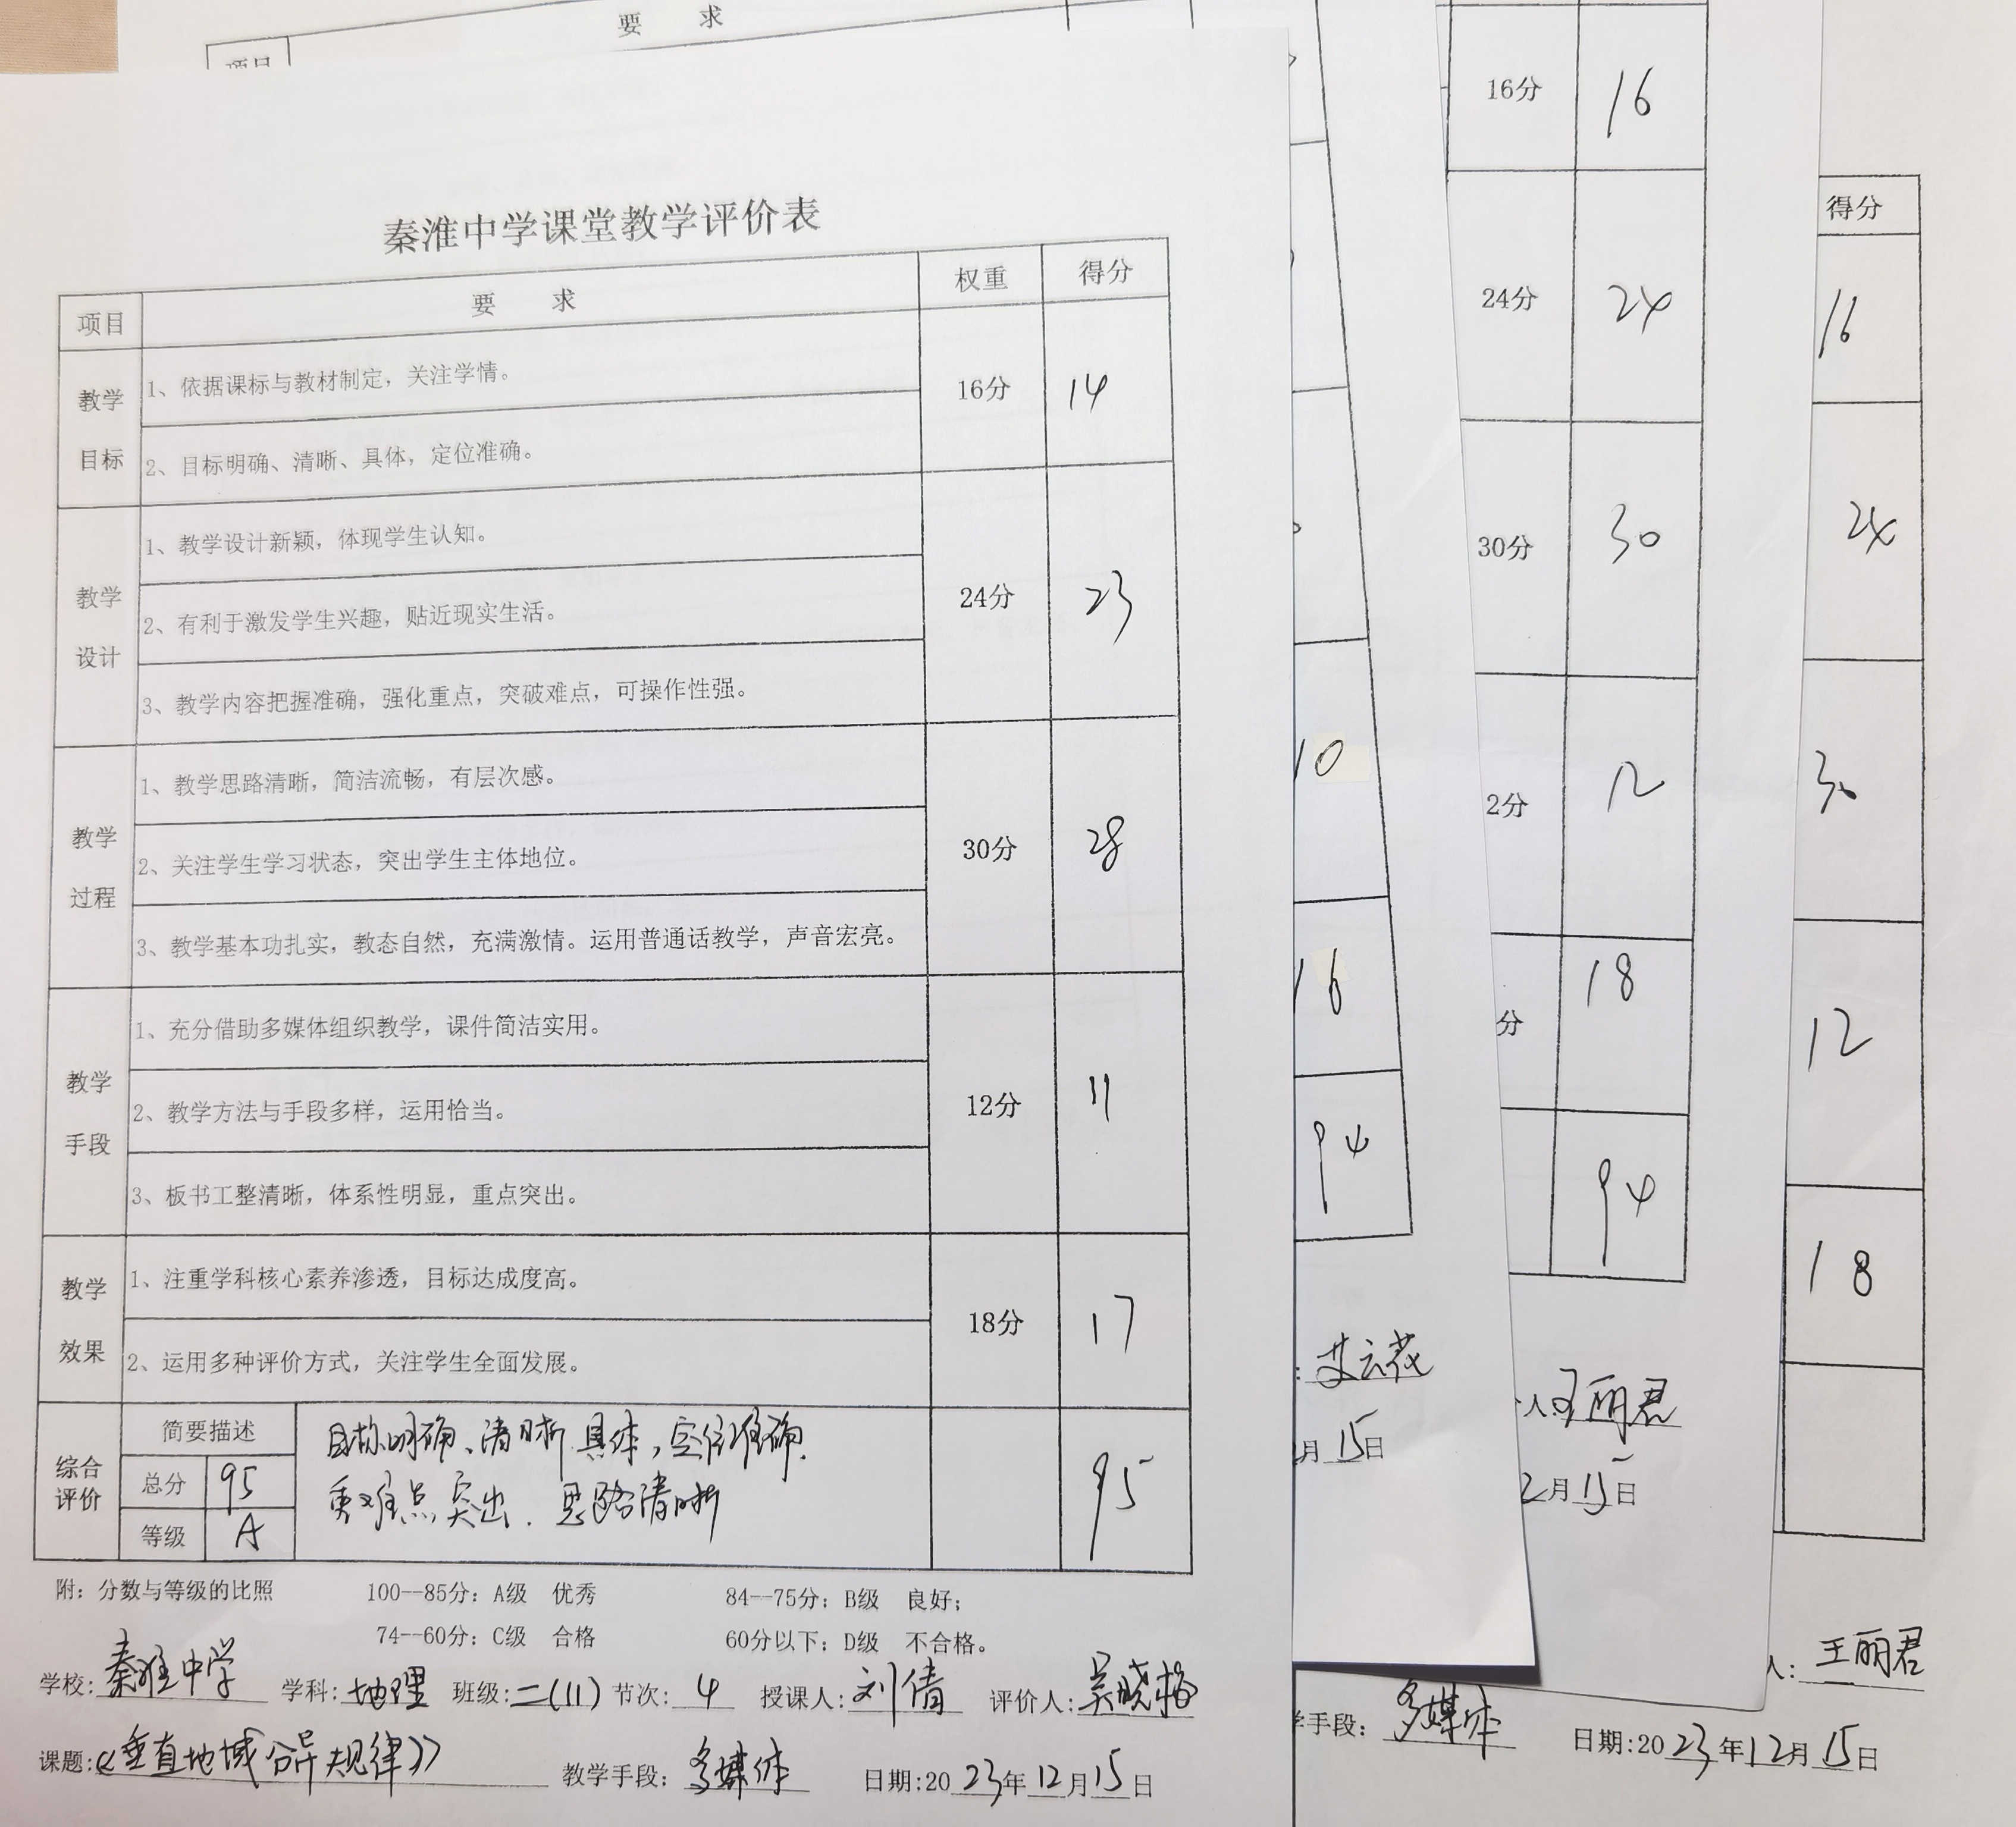 要 求
项目
秦淮中学课堂教学评价表
项目 要 求 权重 得分
教学目标 1、依据课标与教材制定，关注学情。 16分 14
2、目标明确、清晰、具体，定位准确。
教学设计 1、教学设计新颖，体现学生认知。 24分 23
2、有利于激发学生兴趣，贴近现实生活。
3、教学内容把握准确，强化重点，突破难点，可操作性强。
教学过程 1、教学思路清晰，简洁流畅，有层次感。 30分 28
2、关注学生学习状态，突出学生主体地位。
3、教学基本功扎实，教态自然，充满激情。运用普通话教学，声音宏亮。
教学手段 1、充分借助多媒体组织教学，课件简洁实用。 12分 11
2、教学方法与手段多样，运用恰当。
3、板书工整清晰，体系性明显，重点突出。
教学效果 1、注重学科核心素养渗透，目标达成度高。 18分 17
2、运用多种评价方式，关注学生全面发展。
综合评价 简要描述 目标明确、清晰、具体，定位准确. 95
总分 95 重难点突出. 思路清晰
等级 A
附：分数与等级的比照 100--85分：A级 优秀 84--75分：B级 良好；
74--60分：C级 合格 60分以下：D级 不合格。
学校：秦淮中学 学科：地理 班级：二(11) 节次：4 授课人：刘倩 评价人：吴晓格
课题：《垂直地域分异规律》 教学手段：多媒体 日期：2023年12月15日
10
16
94
艾云花
月15日
16分 16
24分 24
30分 30
2分 12
分 18
94
人 王丽君
2月15日
得分
16
24
30
12
18
人：王丽君
学手段：多媒体 日期：2023年12月15日